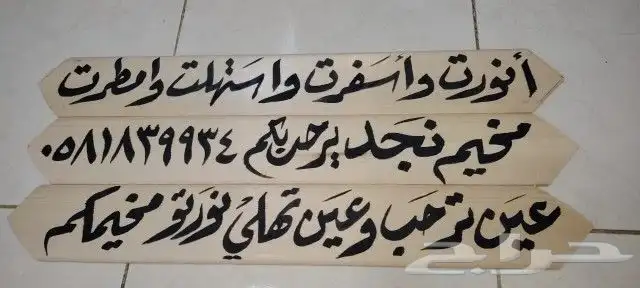 أنورت وأسفرت واستهلت وامطرت
مخيم نجد يرحب بكم ٠٥٨١٨٣٩٩٣٤
عين ترحب وعين تهلي نورتو مخيمكم
حراج